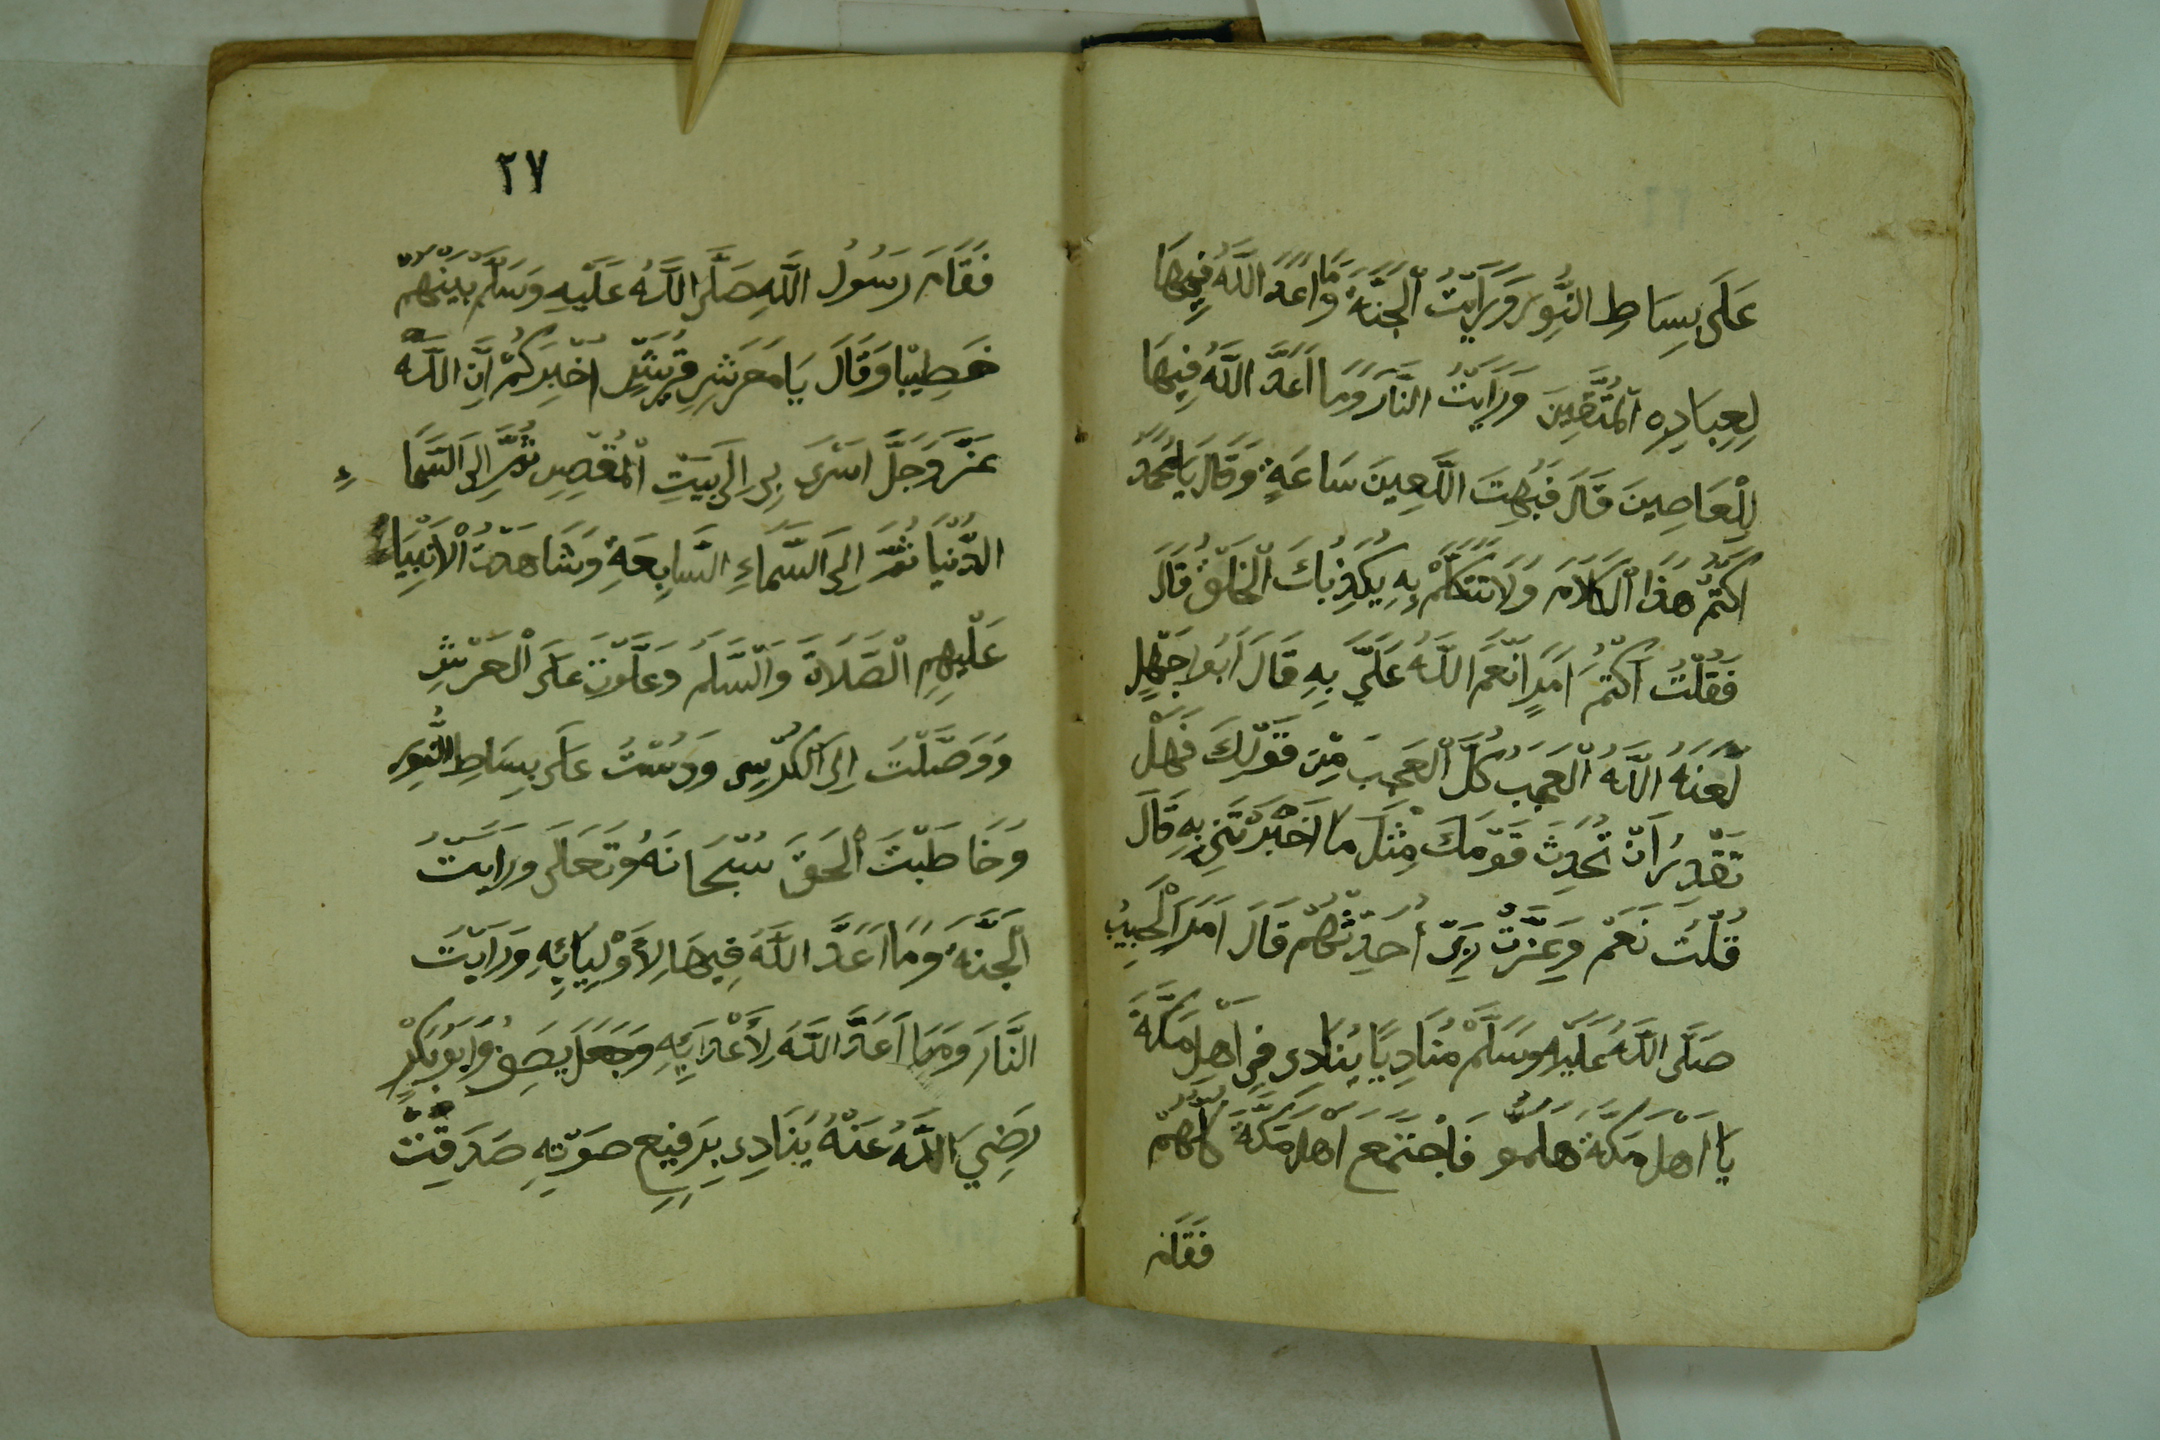 عَلَى بِسَاطِ النُّورِ وَرَاَيْتُ الْجَنَّةَ وَمَا اَعَدَّ اللَّهُ فِيهَا
لِعِبَادِهِ الْمُتَّقِينَ وَرَاَيْتُ النَّارَ وَمَا اَعَدَّ اللَّهُ فِيهَا
لِلْعَاصِينَ قَالَ فَبُهِتَ اللَّعِينَ سَاعَةٍ وَقَالَ يَا مُحَمَّدُ
اَكْتُمُ هَذَا الْكَلَامَ وَلَا تَتَكَلَّمْ بِهِ يُكَذِّبُكَ الْخَلْقُ قَالَ
فَقُلْتُ اَكْتُمُ اَمْرٍ اَنْعَمَ اللَّهُ عَلَيَّ بِهِ قَالَ اَبُوا جَهْلٍ
لَعَنَهُ اللَّهُ الْعَجَبُ كُلَّ الْعَجَبَ مِنْ قَوْلِكَ فَهَلْ
تَقْدِرُ اَنْ تُحَدِثَ قَوْمَكَ مِثْلَ مَا اَخْبَرْتَنِي بِهِ قَالَ
قُلْتُ نَعَمْ وَعِزَّتِ رَبِّي اُحَدِثُهُمْ قَالَ اَمَرَ الْحَبِيبُ
صَلَّى اللَّهُ عَلَيْهِ وَسَلَّمْ مُنَادِيًا يُنَادِي فِي اَهْلِ مَكَّةَ
يَا اَهْلَ مَكَّةَ هَلُمُّو فَاجْتَمَعَ اَهْلَ مَكَّةَ كُلُّهُمْ
فَقَامَ
٢٧
فَقَامَ رَسُولُ اللَّهِ صَلَّى اللَّهُ عَلَيْهِ وَسَلَّمْ بَيْنَهُمْ
خَطِيْبًا وَقَالَ يَا مَعْرَشِرِ قُرَيْشٍ اُخْبِرَكُمْ اَنَّ اللَّهَ
عَزَّ وَجَلَّ اَسْرَى بِي اِلَى بَيْتِ الْمُقْصِدِ ثُمَّ اِلَى السَّمَاءِ
الدُّنْيَا ثُمَّ اِلَى السَّمَاءِ السَّابِعَةِ وَشَاهَدْتُ الْاَنْبِيَاءُ
عَلَيْهِمِ الصَّلَاةَ وَالسَّلَمُ وَعَلَوْتُ عَلَى الْعَرْشِ
وَوَصَّلْتُ اِلَى الْكُرْسِي وَدُسْتُ عَلَى بِسَاطِ النُّورِ
وَخَاطَبْتَ الْحَقَ سُبْحَانَهُ وَتَعَالَى وَرَاَيْتُ
الْجَنَّةَ وَمَا اَعَدَّ اللَّهُ فِيهَا لِاَوْلِيَائِهِ وَرَاَيْتُ
النَّارَ وَمَا اَعَدَّ اللَّهُ لِاَعْدَائِهِ وَجَعَلَ يَصِفُ وَاَبُو بَكْرٍ
رَضِيَ اللَّهُ عَنْهُ يُنَادِي بِرَفِيعِ صَوْتِهِ صَدَقْتَ